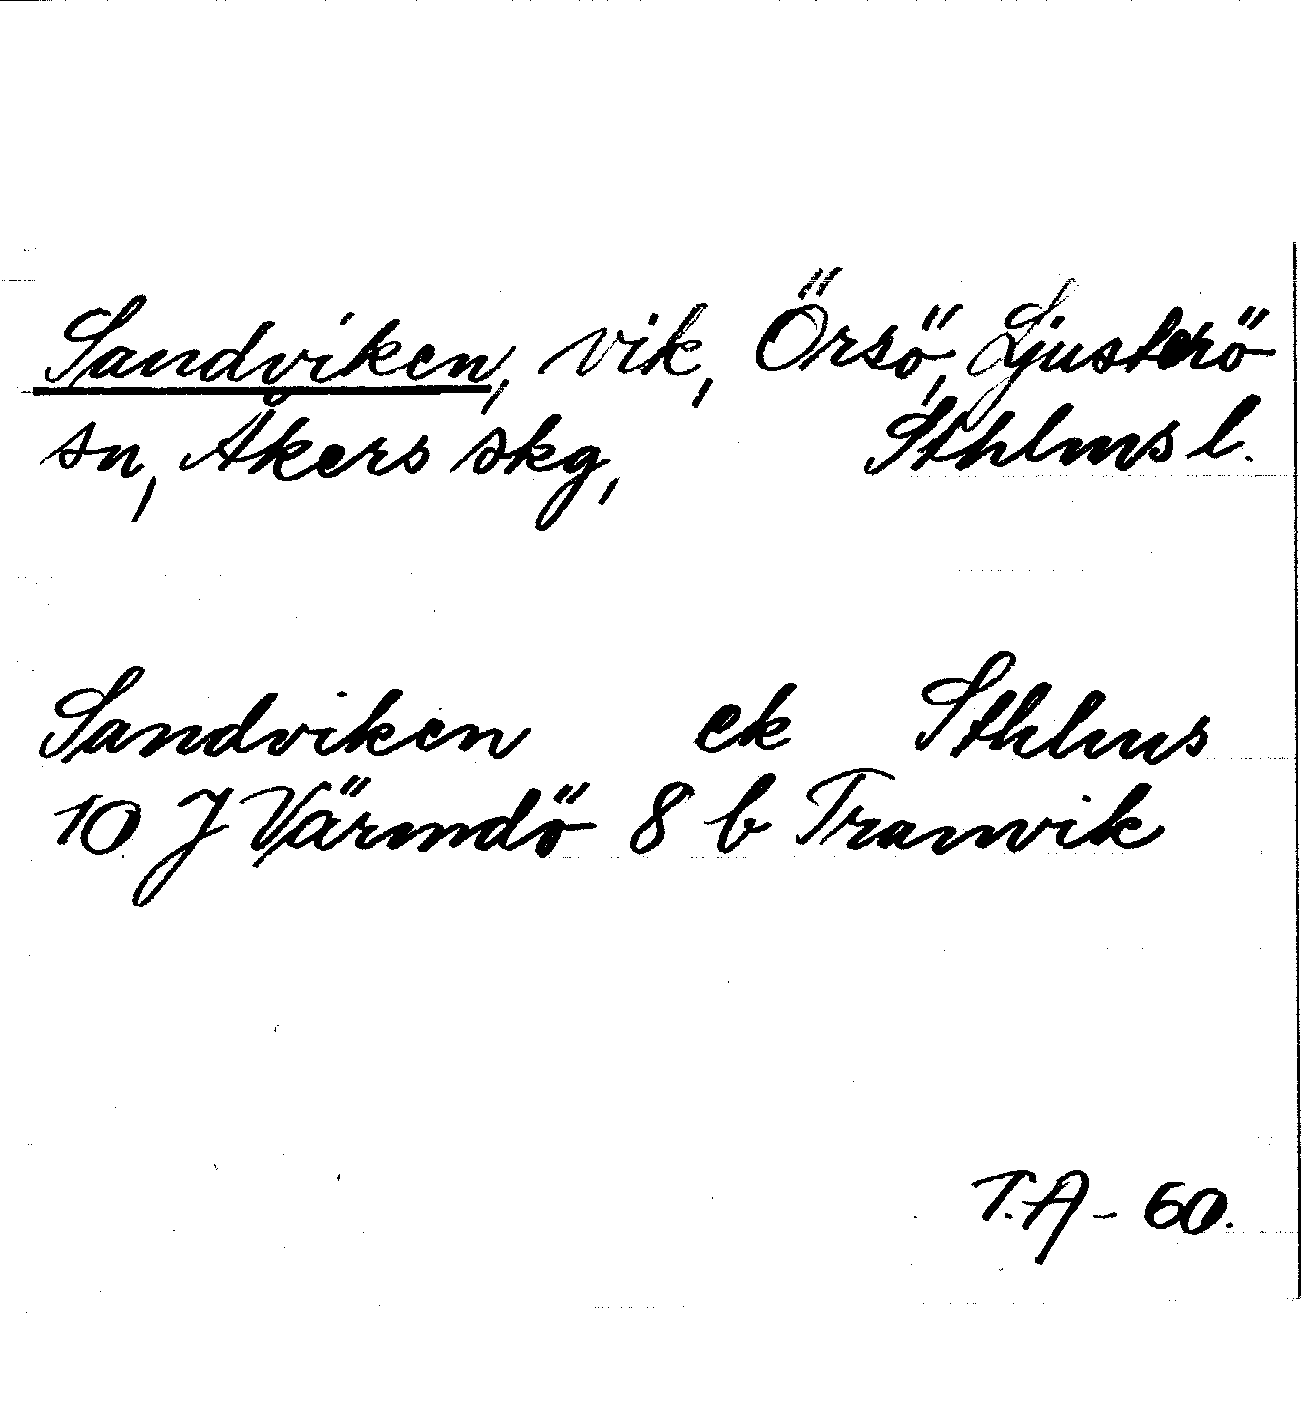 Sandviken, vik, Örsö, Ljusterö
sn, Åkers skg, Sthlms l.
Sandviken ek Sthlms
10 J Värmdö 8 b Tranvik
T.A - 60.